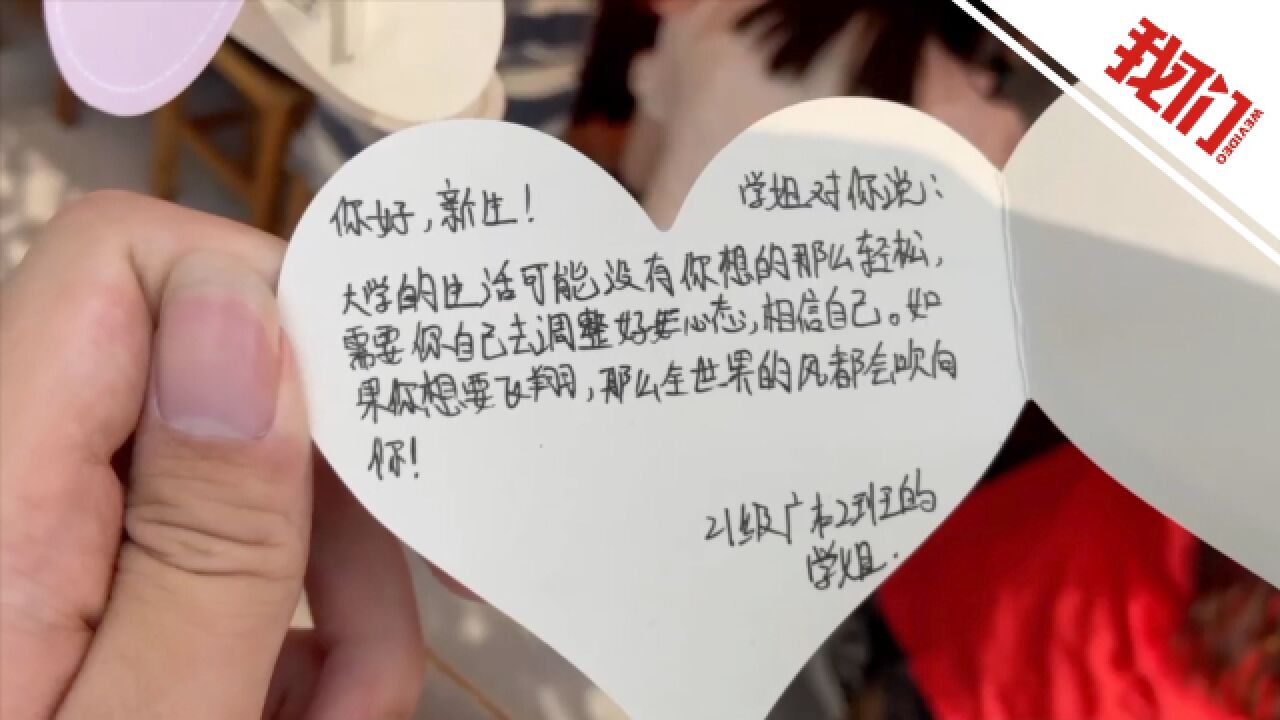 我们
WEVIDEO
你好，新生！
学姐对你说：
大学的生活可能没有你想的那么轻松，
需要你自己去调整好心态，相信自己。如
果你想要飞翔，那么全世界的风都会吹向
你！
21级广本2班的
学姐.